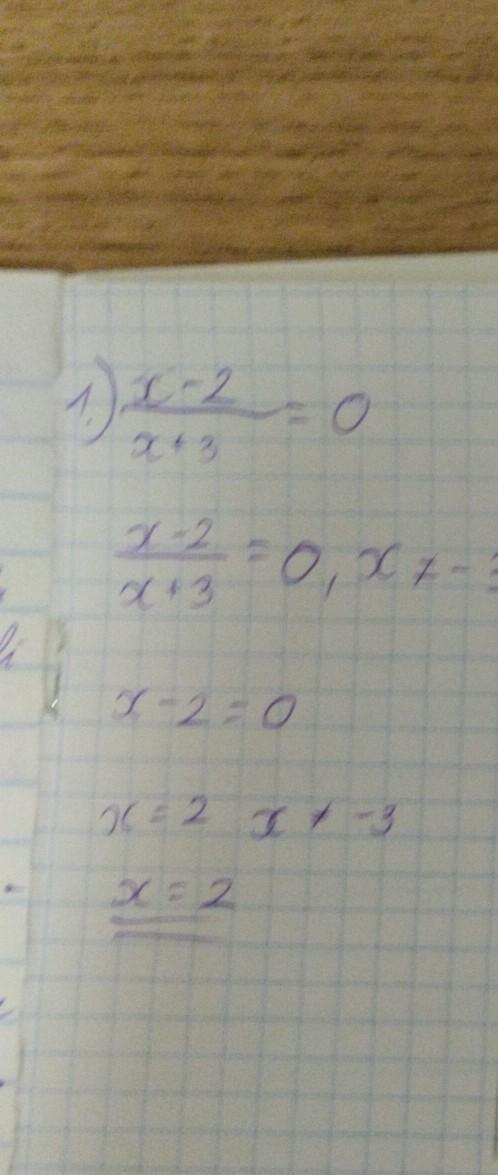 1.) x-2/x+3 = 0
x-2/x+3 = 0, x ≠ -3
x-2=0
x=2 x ≠ -3
x=2